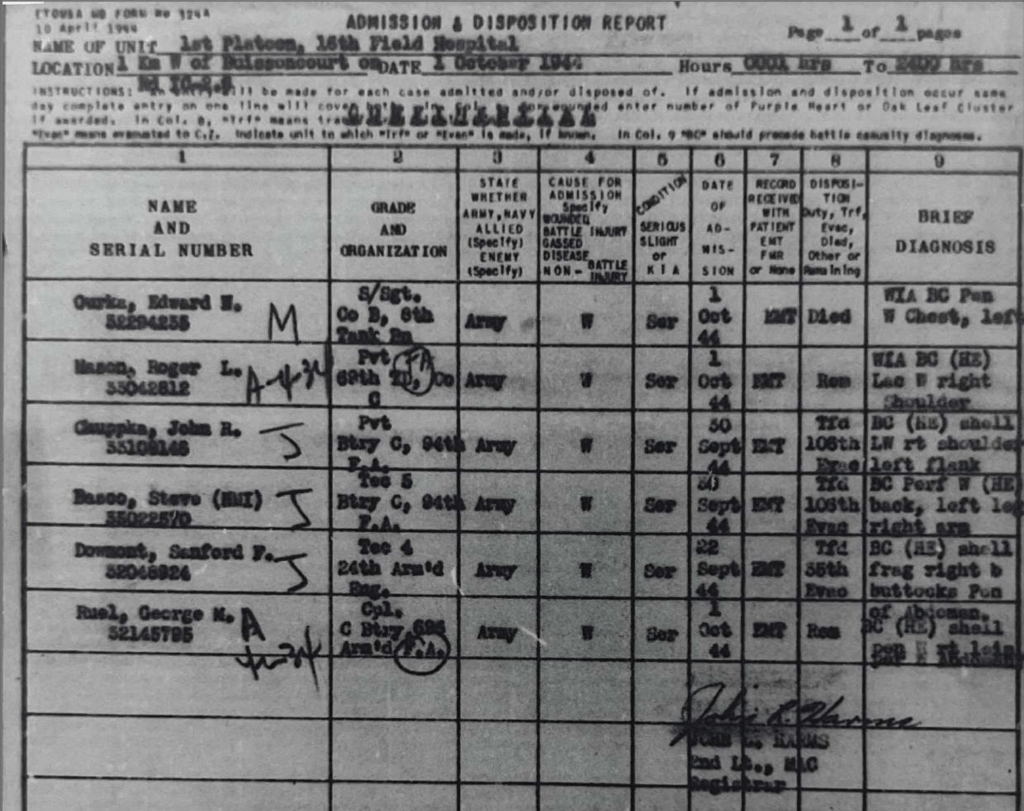 ETOUSA MD FORM No 324A
10 April 1944
ADMISSION & DISPOSITION REPORT
Page 1 of 1 pages
NAME OF UNIT 1st Platoon, 16th Field Hospital
LOCATION 1 Km W of Buissoncourt on DATE 1 October 1944 Hours 0001 hrs To 2400 hrs
INSTRUCTIONS: will be made for each case admitted and/or disposed of. If admission and disposition occur same
day complete entry on one line will cover wounded enter number of Purple Heart or Oak Leaf Cluster
if awarded. In Col. 8, "Trf" means
"Evac" means evacuated to C.Z. Indicate unit to which "Trf" or "Evac" is made, if known. In Col. 9 "BC" should precede battle casualty diagnoses.
1 2 3 4 5 6 7 8 9
NAME AND SERIAL NUMBER
GRADE AND ORGANIZATION
STATE WHETHER ARMY, NAVY ALLIED (Specify) ENEMY (Specify)
CAUSE FOR ADMISSION Specify WOUNDED BATTLE INJURY GASSED DISEASE NON-BATTLE INJURY
CONDITION SERIOUS SLIGHT or KIA
DATE OF AD-MIS-SION
RECORD RECEIVED WITH PATIENT EMT FMR or None
DISPOSI-TION Duty, Trf, Evac, Died, Other or Remaining
BRIEF DIAGNOSIS
S/Sgt. 1 WIA BC Pen
Edward M Co B, 8th Army W Ser Oct EMT Died W Chest, left
32294235 Tank Bn 44
Pvt FA 1 WIA BC (HE)
Mason, Roger L. A-4-34 69th Co Army W Ser Oct EMT Rem Lac W right
33042812 C 44 Shoulder
Pvt 30 Tfd BC (HE) shell
John R. J Btry C, 94th Army W Ser Sept EMT 106th LW rt shoulde
33109148 F.A. 44 Evac left flank
Tec 5 30 Tfd BC Perf W (HE)
Basco, Steve (NMI) J Btry C, 94th Army W Ser Sept EMT 106th back, left leg
33022570 F.A. 44 Evac right arm
Tec 4 22 Tfd BC (HE) shell
Dowmont, Sanford F. J 24th Arm'd Army W Ser Sept EMT 35th frag right b
32048924 Eng. 44 Evac buttocks Pen
Cpl. 1 of Abdomen.
Ruel, George M. A C Btry 696 Army W Ser Oct EMT Rem BC (HE) shell
32145795 4-34 Arm'd F.A. 44 pen W rt loin
John L. Harms
JOHN L. HARMS
2nd Lt., MAC
Registrar